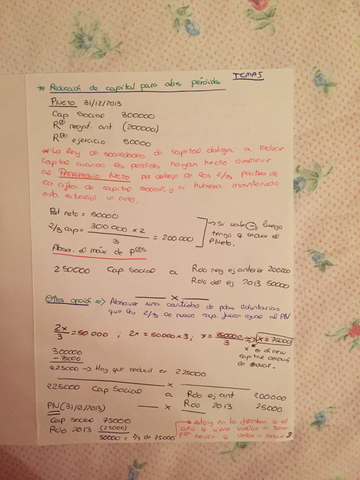 TEMA 5
* Reducción de capital para abs. pérdidas
PNeto 31/12/2013
Cap Social 300000
Rdos negat. ant (200000)
Rdo ejercicio 50000
* La ley de sociedades de capital obliga a reducir
capital cuando las pérdidas hayan hecho disminuir
el PATRIMONIO NETO por debajo de las 2/3 partes de
la cifra de capital social, y si hubiera mantenido
esta situación un año.
Pat neto = 50000
2/3 cap = 300.000 x 2 / 3 = 200.000
si sale (-) luego
tengo q
PNeto.
Absor. el máx de pdas
250000 Cap Social a Rdo neg ej anterior 200000
Rdo del ej 2013 50000
x
Otra opción => Absorver una cantidad de pdas voluntarias
que los 2/3 de nuevo cap fueran igual al PN
2x/3 = 50.000 ; 2x = 50000 x 3 ; x = 150000/2 => x = 75000
x = el new
capital después
de reducir.
300000
- 75000
225000 -> Hay que reducir en 225000
x
225000 Cap Social a Rdo ej ant 200000
Rdo 2013 25000
x
PN (31/12/2013)
Cap social 75000
Rdo 2013 (25000)
50000 = 2/3 de 75000
estoy en la
año q viene vuelvo a tener
a reducir
3